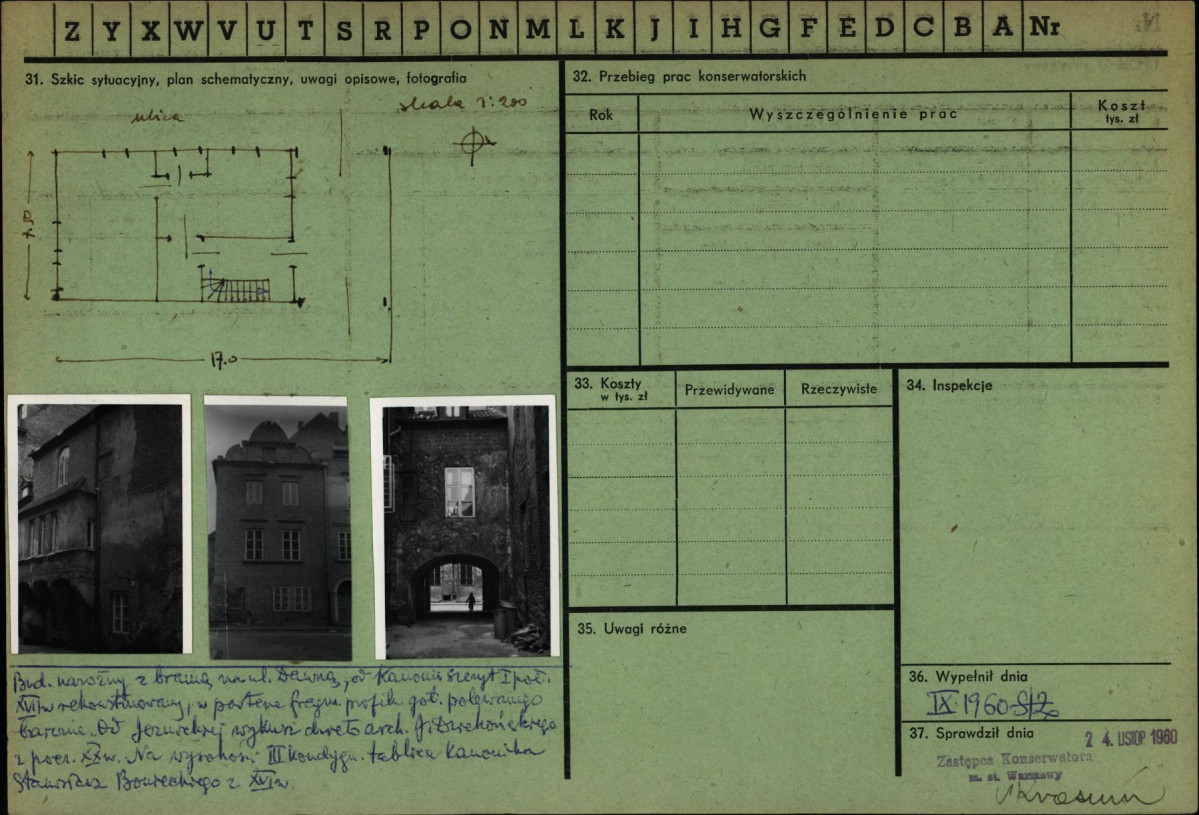 Z Y X W V U T S R P O N M L K J I H G F E D C B A Nr
31. Szkic sytuacyjny, plan schematyczny, uwagi opisowe, fotografia
skala 1:200
ulica
7.50
17.0
32. Przebieg prac konserwatorskich
Rok
Wyszczególnienie prac
Koszt
tys. zł
33. Koszty
w tys. zł
Przewidywane
Rzeczywiste
34. Inspekcje
35. Uwagi różne
Bud. narożny z bramą na ul. Dawną, od Kanonii szczyt I poł.
XVII w rekonstruowany, w parterze fragm. profilu got. polewanego
Od Jezuickiej wykusz dzieło arch.
z pocz. XX w. Na wysokości III kondygn. tablica Kanonika
Stanisława z XVI w.
36. Wypełnił dnia
IX. 1960
37. Sprawdził dnia
2 4. LISTOP. 1960
Zastępca Konserwatora
m. st. Warszawy